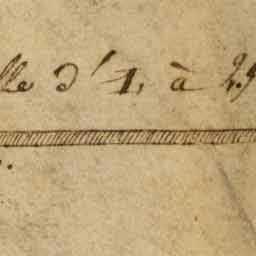 lle d'1, à 25